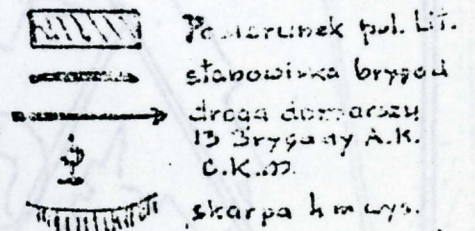 Posterunek pol. Lit.
stanowiska brygad
droga domarszu
13 Brygady A.K.
C.K.M.
skarpa 4 m wys.